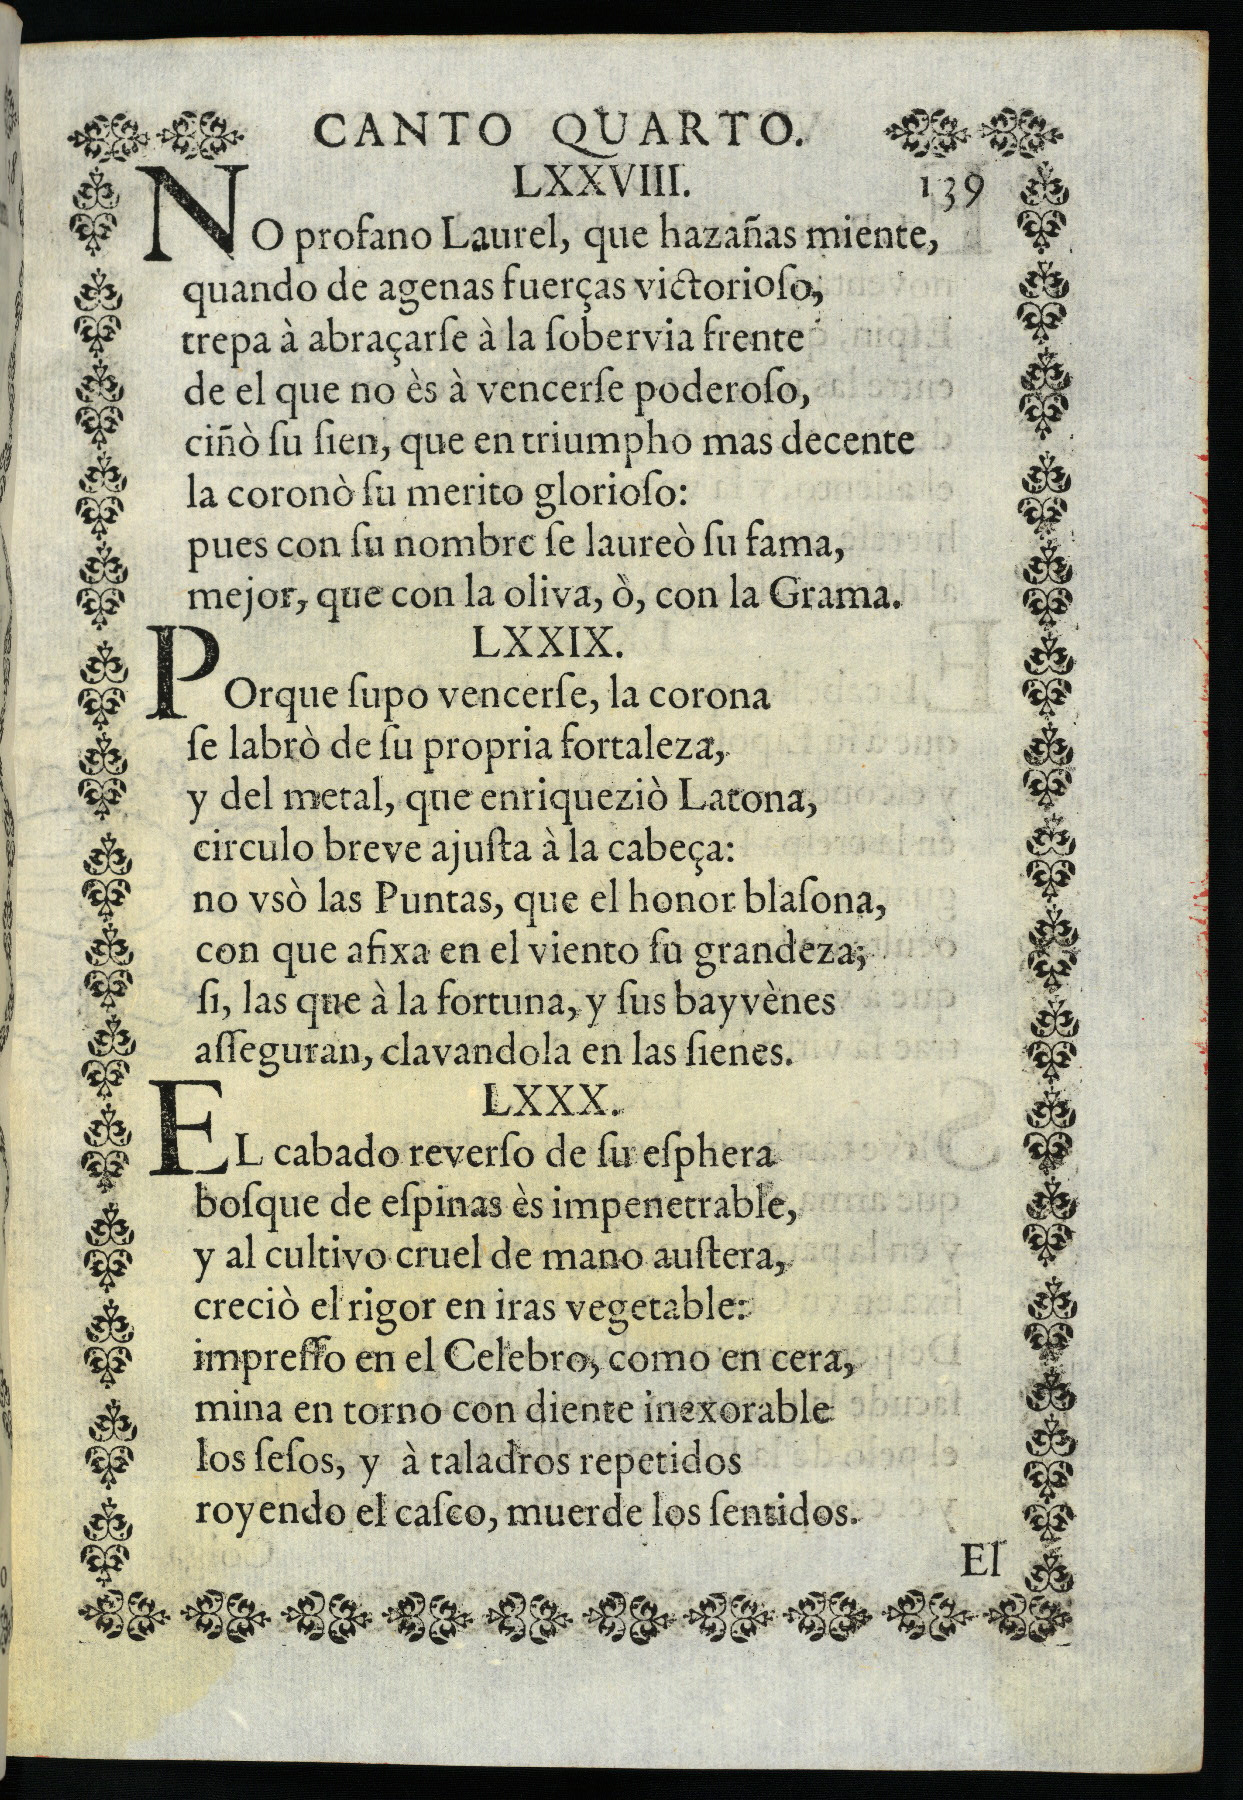 CANTO QUARTO.
LXXVIII. 139
NO profano Laurel, que hazañas miente,
quando de agenas fuerças victorioſo,
trepa à abraçarſe à la ſobervia frente
de el que no ès à vencerſe poderoſo,
ciñò ſu ſien, que en triumpho mas decente
la coronò ſu merito glorioſo:
pues con ſu nombre ſe laureò ſu fama,
mejor, que con la oliva, ò, con la Grama.
LXXIX.
POrque ſupo vencerſe, la corona
ſe labrò de ſu propria fortaleza,
y del metal, que enriqueziò Latona,
circulo breve ajuſta à la cabeça:
no vsò las Puntas, que el honor blaſona,
con que afixa en el viento ſu grandeza;
ſi, las que à la fortuna, y ſus bayvènes
aſſeguran, clavandola en las ſienes.
LXXX.
EL cabado reverſo de ſu eſphera
boſque de eſpinas ès impenetrable,
y al cultivo cruel de mano auſtera,
creciò el rigor en iras vegetable:
impreſſo en el Celebro, como en cera,
mina en torno con diente inexorable
los ſeſos, y à taladros repetidos
royendo el caſco, muerde los ſentidos.
El